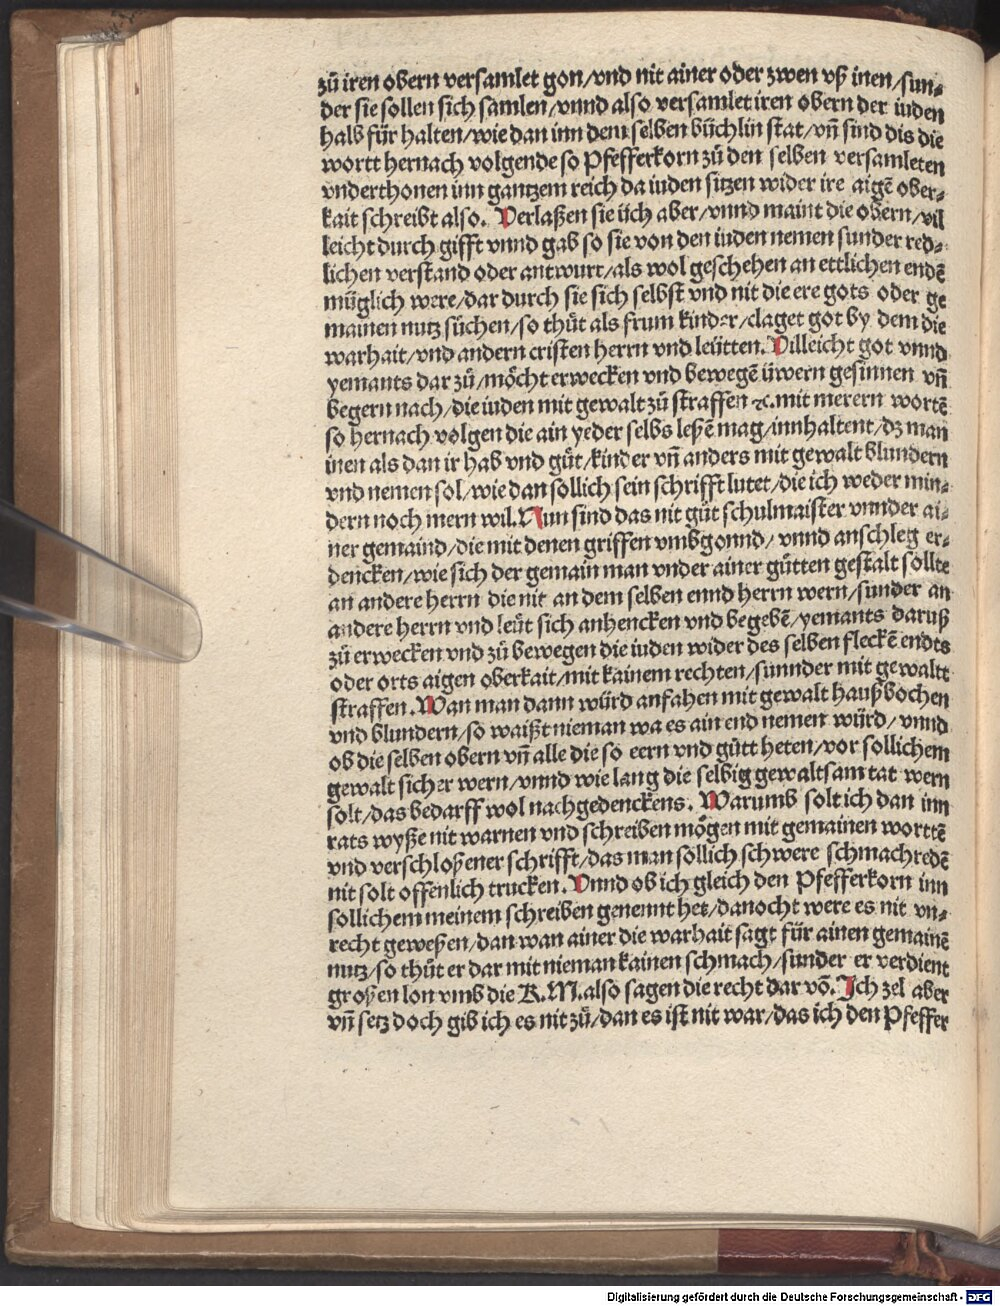 zů iren obern versamlet gon/vnd nit ainer oder zwen vß inen/sun⸗
der sie sollen sich samlen/vnnd also versamlet iren obern der iuden
halb für halten/wie dan inn dem selben büchlin stat/vñ sind dis die
wortt hernach volgende so Pfefferkorn zů den selben versamleten
vnderthonen inn gantzem reich da iuden sitzen wider ire aigē ober⸗
kait schreibt also. Verlaßen sie üch aber/vnnd maint die obern/vil
leicht durch gifft vnnd gab so sie von den iuden nemen sunder red⸗
lichen verstand oder antwurt/als wol geschehen an ettlichen endē
müglich were/dar durch sie sich selbst vnd nit die ere gots oder ge
mainen nutz sůchen/so thůt als frum kinder/claget got by dem die
warhait/vnd andern cristen herrn vnd leütten. Villeicht got vnnd
yemants dar zů/möcht erwecken vnd bewegē üwern gesinnen vñ
begern nach/die iuden mit gewalt zů straffen ⁊c. mit merern wortē
so hernach volgen die ain yeder selbs leßē mag/innhaltent/dz man
inen als dan ir hab vnd gůt/kinder vñ anders mit gewalt blundern
vnd nemen sol/wie dan sollich sein schrifft lutet/die ich weder min⸗
dern noch mern wil. Nun sind das nit gůt schulmaister vnnder ai⸗
ner gemaind/die mit denen griffen vmbgonnd/vnnd anschleg er⸗
dencken/wie sich der gemain man vnder ainer gůtten gestalt sollte
an andere herrn die nit an dem selben ennd herrn wern/sunder an
andere herrn vnd leüt sich anhencken vnd begebē/yemants daruß
zů erwecken vnd zů bewegen die iuden wider des selben fleckē endts
oder orts aigen oberkait/mit kainem rechten/sunnder mit gewaltt
straffen. Wan man dann würd anfahen mit gewalt haußbochen
vnd blundern/so waißt nieman wa es ain end nemen würd/vnnd
ob die selben obern vñ alle die so eern vnd gůtt heten/vor sollichem
gewalt sicher wern/vnnd wie lang die selbig gewaltsam tat wern
solt/das bedarff wol nachgedenckens. Warumb solt ich dan inn
rats wyße nit warnen vnd schreiben mögen mit gemainen worttē
vnd verschloßener schrifft/das man sollich schwere schmachredē
nit solt offenlich trucken. Vnnd ob ich gleich den Pfefferkorn inn
sollichem meinem schreiben genennt het/danocht were es nit vn⸗
recht geweßen/dan wan ainer die warhait sagt für ainen gemainē
nutz/so thůt er dar mit nieman kainen schmach/sunder er verdient
großen lon vmb die K. M. also sagen die recht dar vō. Ich zel aber
vñ setz doch gib ich es nit zů/dan es ist nit war/das ich den Pfeffer
Digitalisierung gefördert durch die Deutsche Forschungsgemeinschaft - DFG